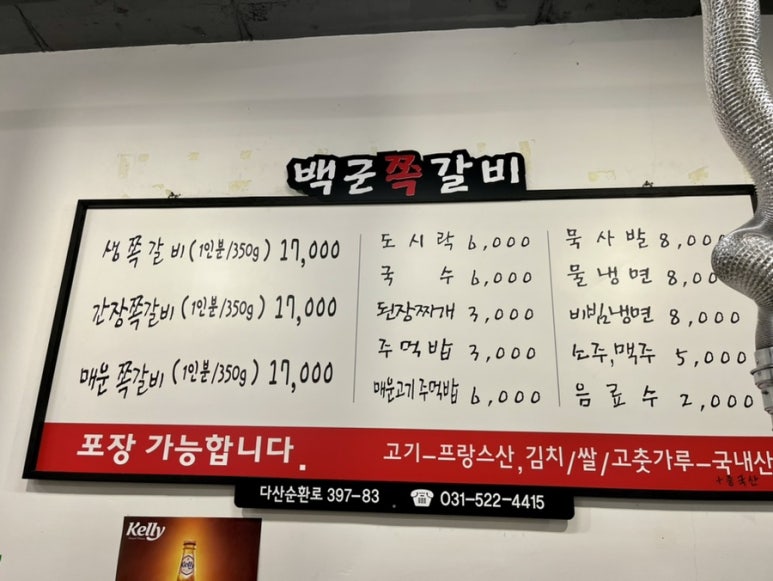 백군쪽갈비
생쪽갈비(1인분/350g) 17,000
간장쪽갈비(1인분/350g) 17,000
매운쪽갈비(1인분/350g) 17,000
도시락 6,000
국수 6,000
된장찌개 3,000
주먹밥 3,000
매운고기주먹밥 6,000
묵사발 8,000
물냉면 8,00
비빔냉면 8,000
소주,맥주 5,000
음료수 2,000
포장 가능합니다.
고기-프랑스산,김치/쌀/고춧가루-국내산
+중국산
다산순환로 397-83 ☎ 031-522-4415
Kelly
Kelly